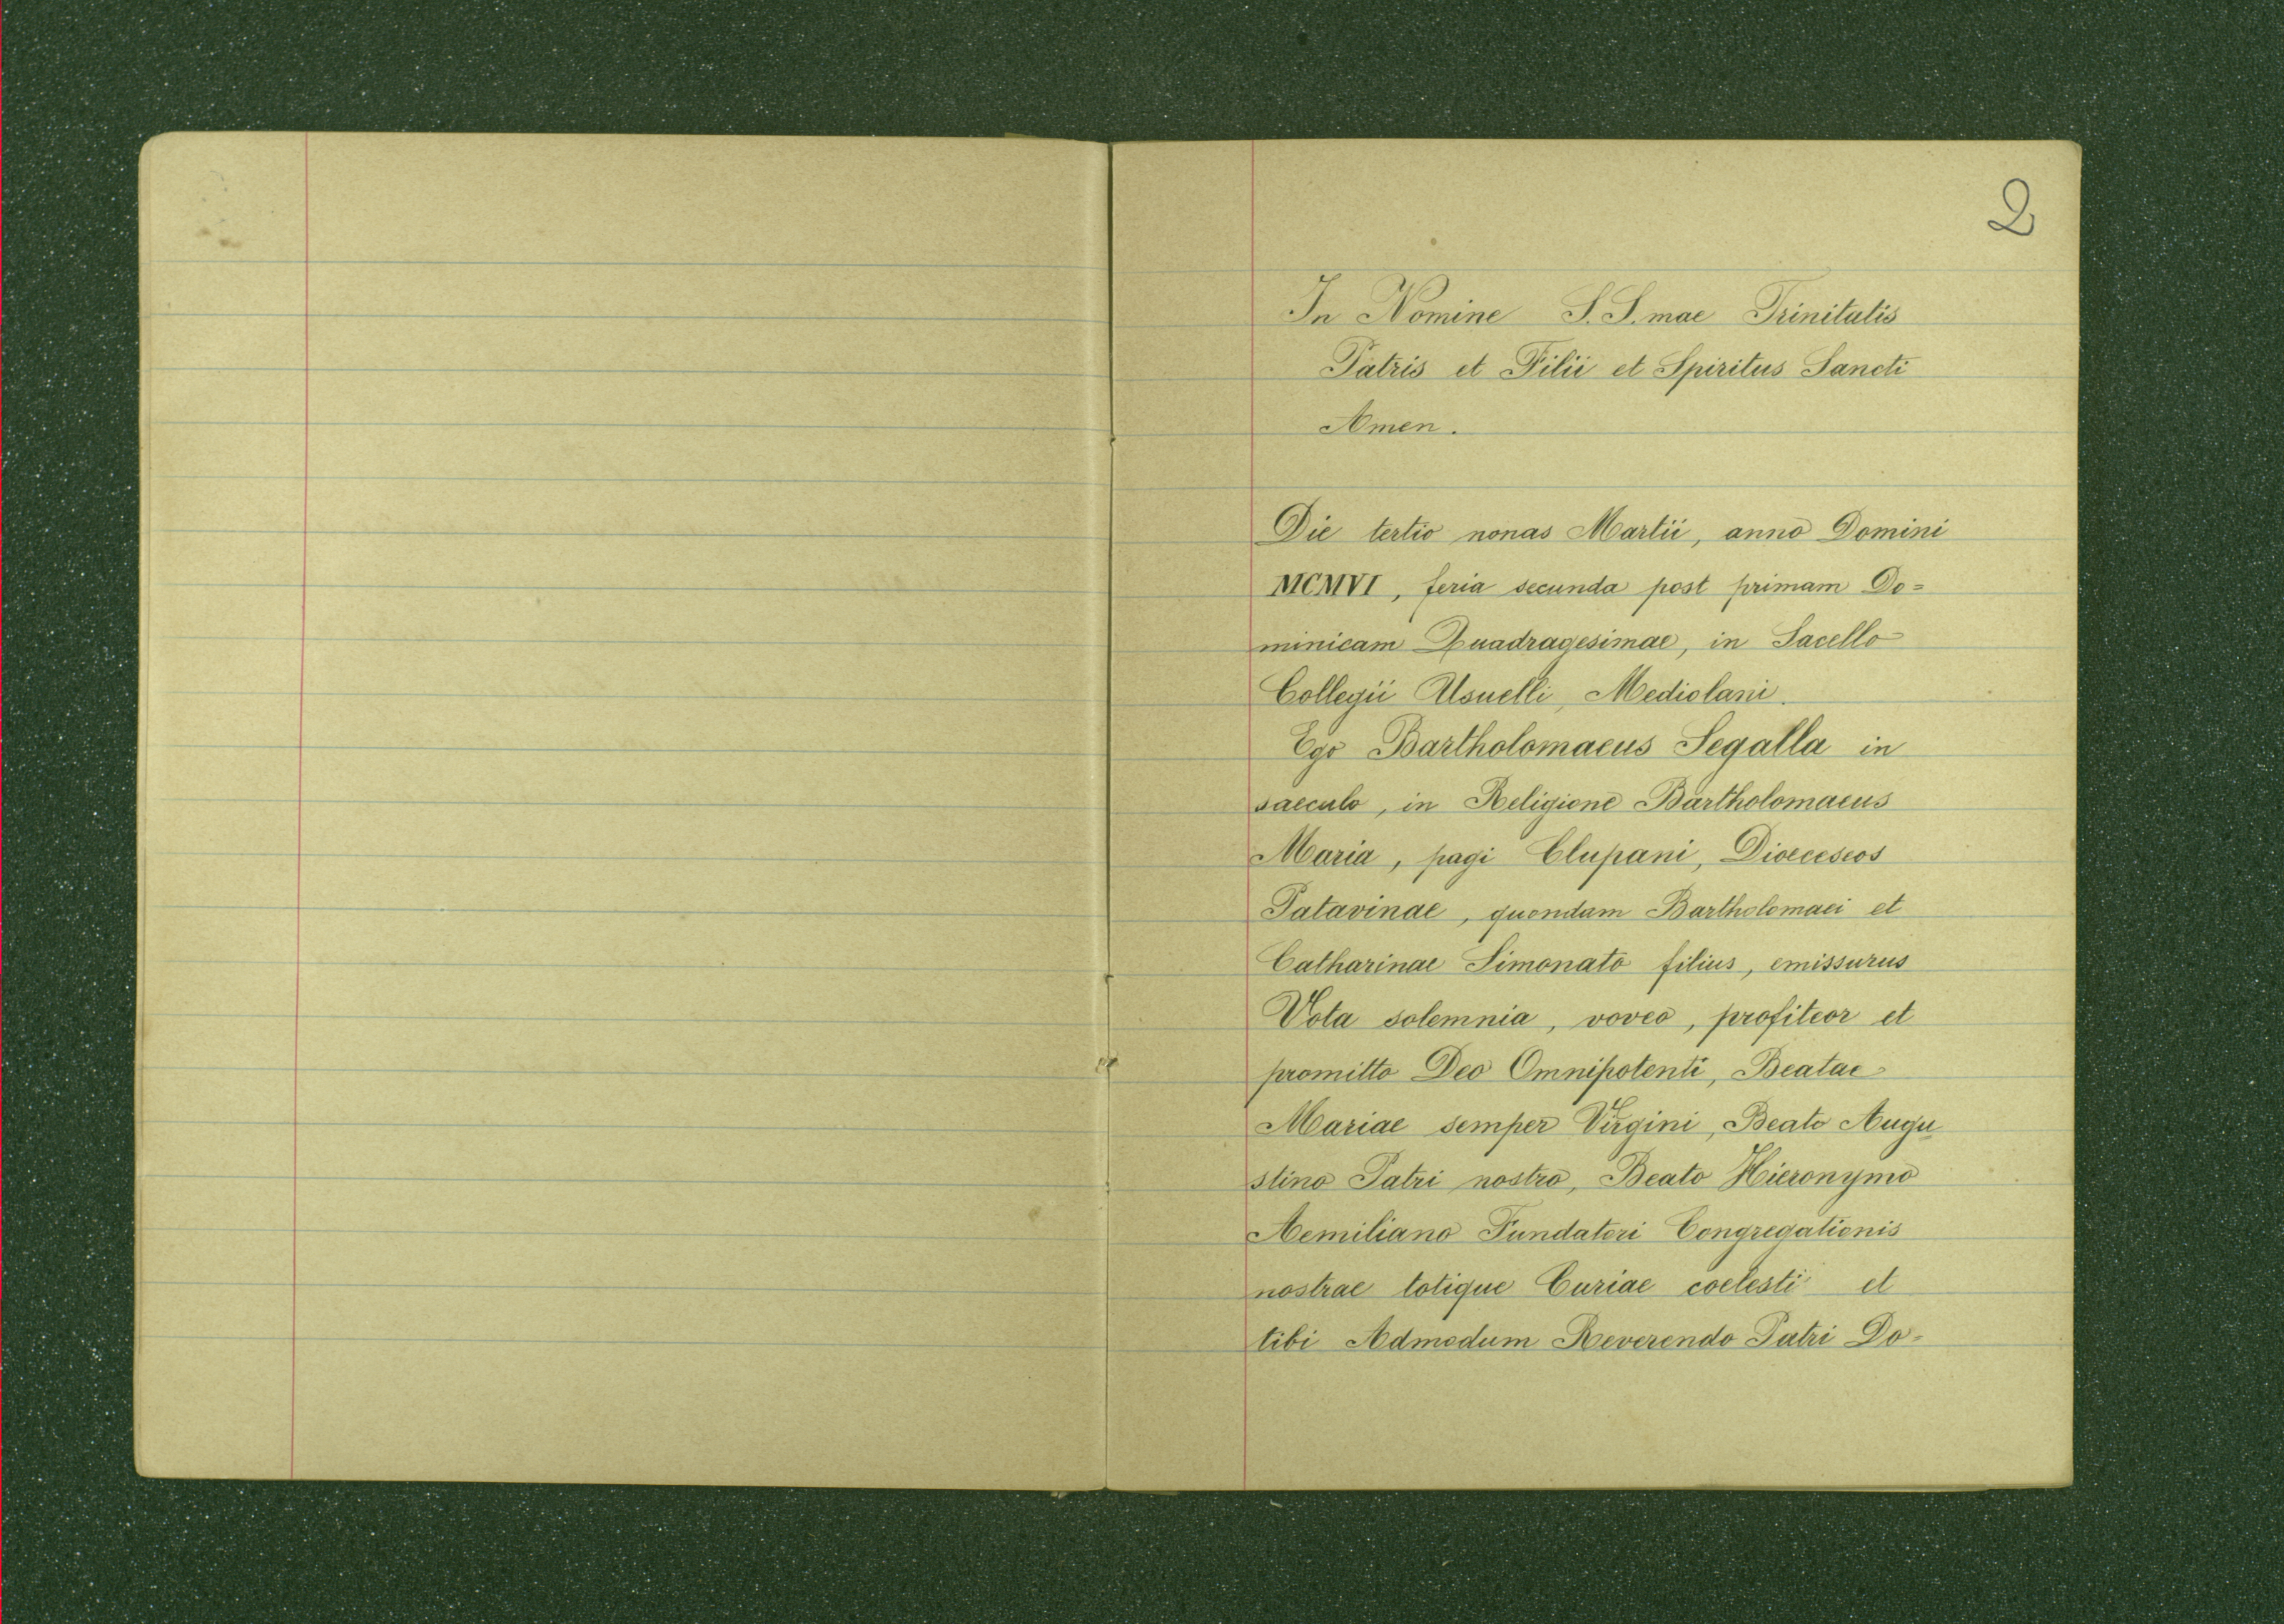 2
In Nomine S. S. mae Trinitatis
Patris et Filii et Spiritus Sancti
Amen.
Die tertio nonas Martii, anno Domini
MCMVI, feria secunda post primam Do=
minicam Quadragesimae, in Sacello
Collegii Usuelli, Mediolani.
Ego Bartholomaeus Segalla in
saeculo, in Religione Bartholomaeus
Maria, pagi Clupani, Dioeceseos
Patavinae, quondam Bartholomaei et
Catharinae Simonato filius, emissurus
Vota solemnia, voveo, profiteor et
promitto Deo Omnipotenti, Beatae
Mariae semper Virgini, Beato Augu
stino Patri nostro, Beato Hieronymo
Aemiliano Fundatori Congregationis
nostrae totique Curiae coelesti et
tibi Admodum Reverendo Patri Do=